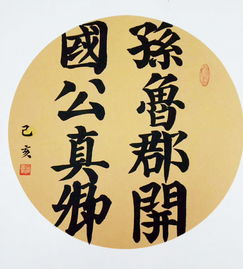 孫魯郡開
國公真卿
己亥